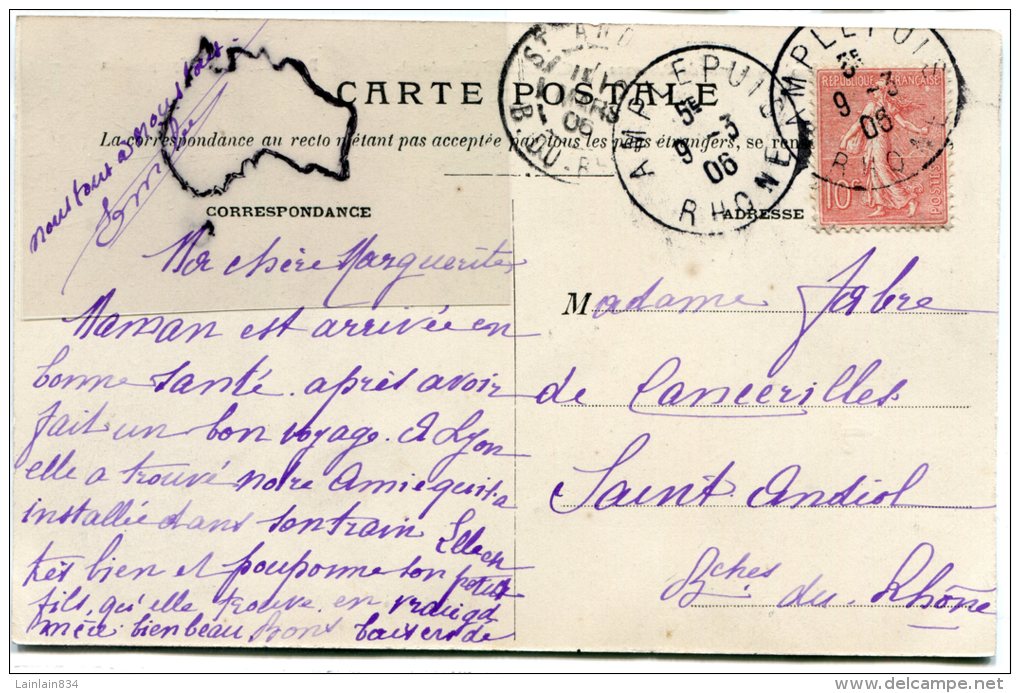 CARTE POSTALE
La correspondance au recto n'étant pas acceptée par tous les pays étrangers, se
CORRESPONDANCE
ADRESSE
Ma chère Marguerite
Maman est arrivée en
bonne santé après avoir
fait un bon voyage. A Lyon
elle a trouvé notre Amie qui l'a
installée dans son train Elle est
très bien et pouponne son petit
fils, qu'elle trouve en vrai gd
mère bien beau Bons baisers de
nous tous à vous tous
Madame Fabre
de Cancerilles
Saint Andiol
Bches du Rhône
AMPLEPUIS
5E
9 -3
06
RHONE
AMPLEPUIS
5E
9 -3
06
RHONE
ST AND
MARS
06
B. DU RH
REPUBLIQUE FRANÇAISE
10
POSTES
Lainlain834
www.delcampe.net